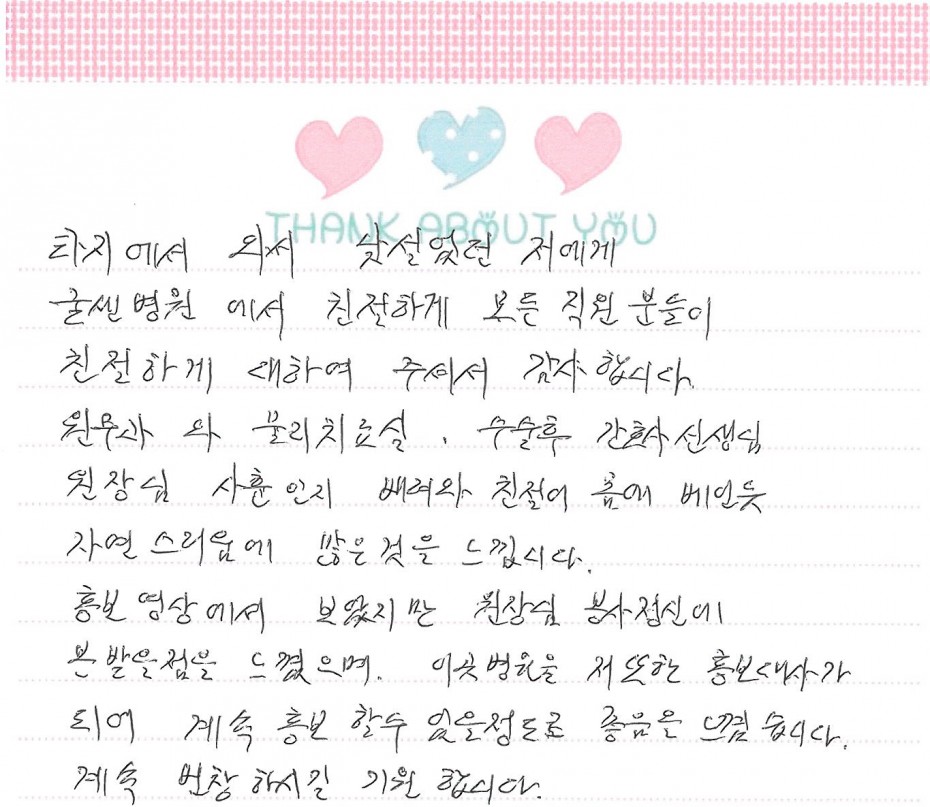 THANK ABOUT YOU
타지에서 와서 낯설었던 저에게
굴쎈병원 에서 친절하게 모든 직원 분들이
친절하게 대하여 주셔서 감사 합니다.
원무과 와 물리치료실 . 수술후 간호사 선생님
원장님 사훈인지 배려와 친절이 몸에 베인듯
자연스러움에 많은것을 느낍니다.
홍보 영상에서 보았지만 원장님 봉사정신에
본 받을점을 느꼈으며. 이곳병원을 저 또한 홍보대사가
되어 계속 홍보 할수 있을정도로 좋음을 느낌 습니다.
계속 번창 하시길 기원 합니다.